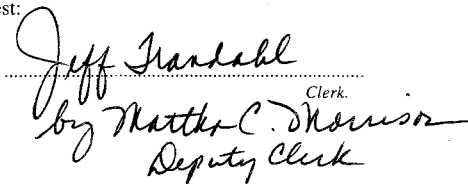 est:
Jeff Trandahl
Clerk.
by Martha C. Morrison
Deputy Clerk